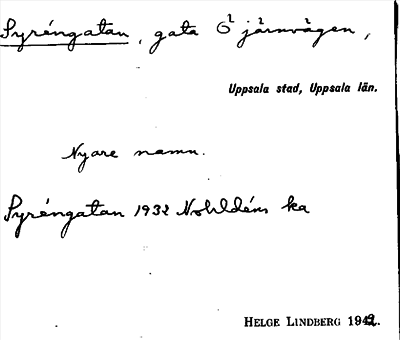 Syréngatan, gata Ö järnvägen,
Uppsala stad, Uppsala län.
Nyare namn.
Syréngatan 1932 Nohldéns ka
HELGE LINDBERG 1942.